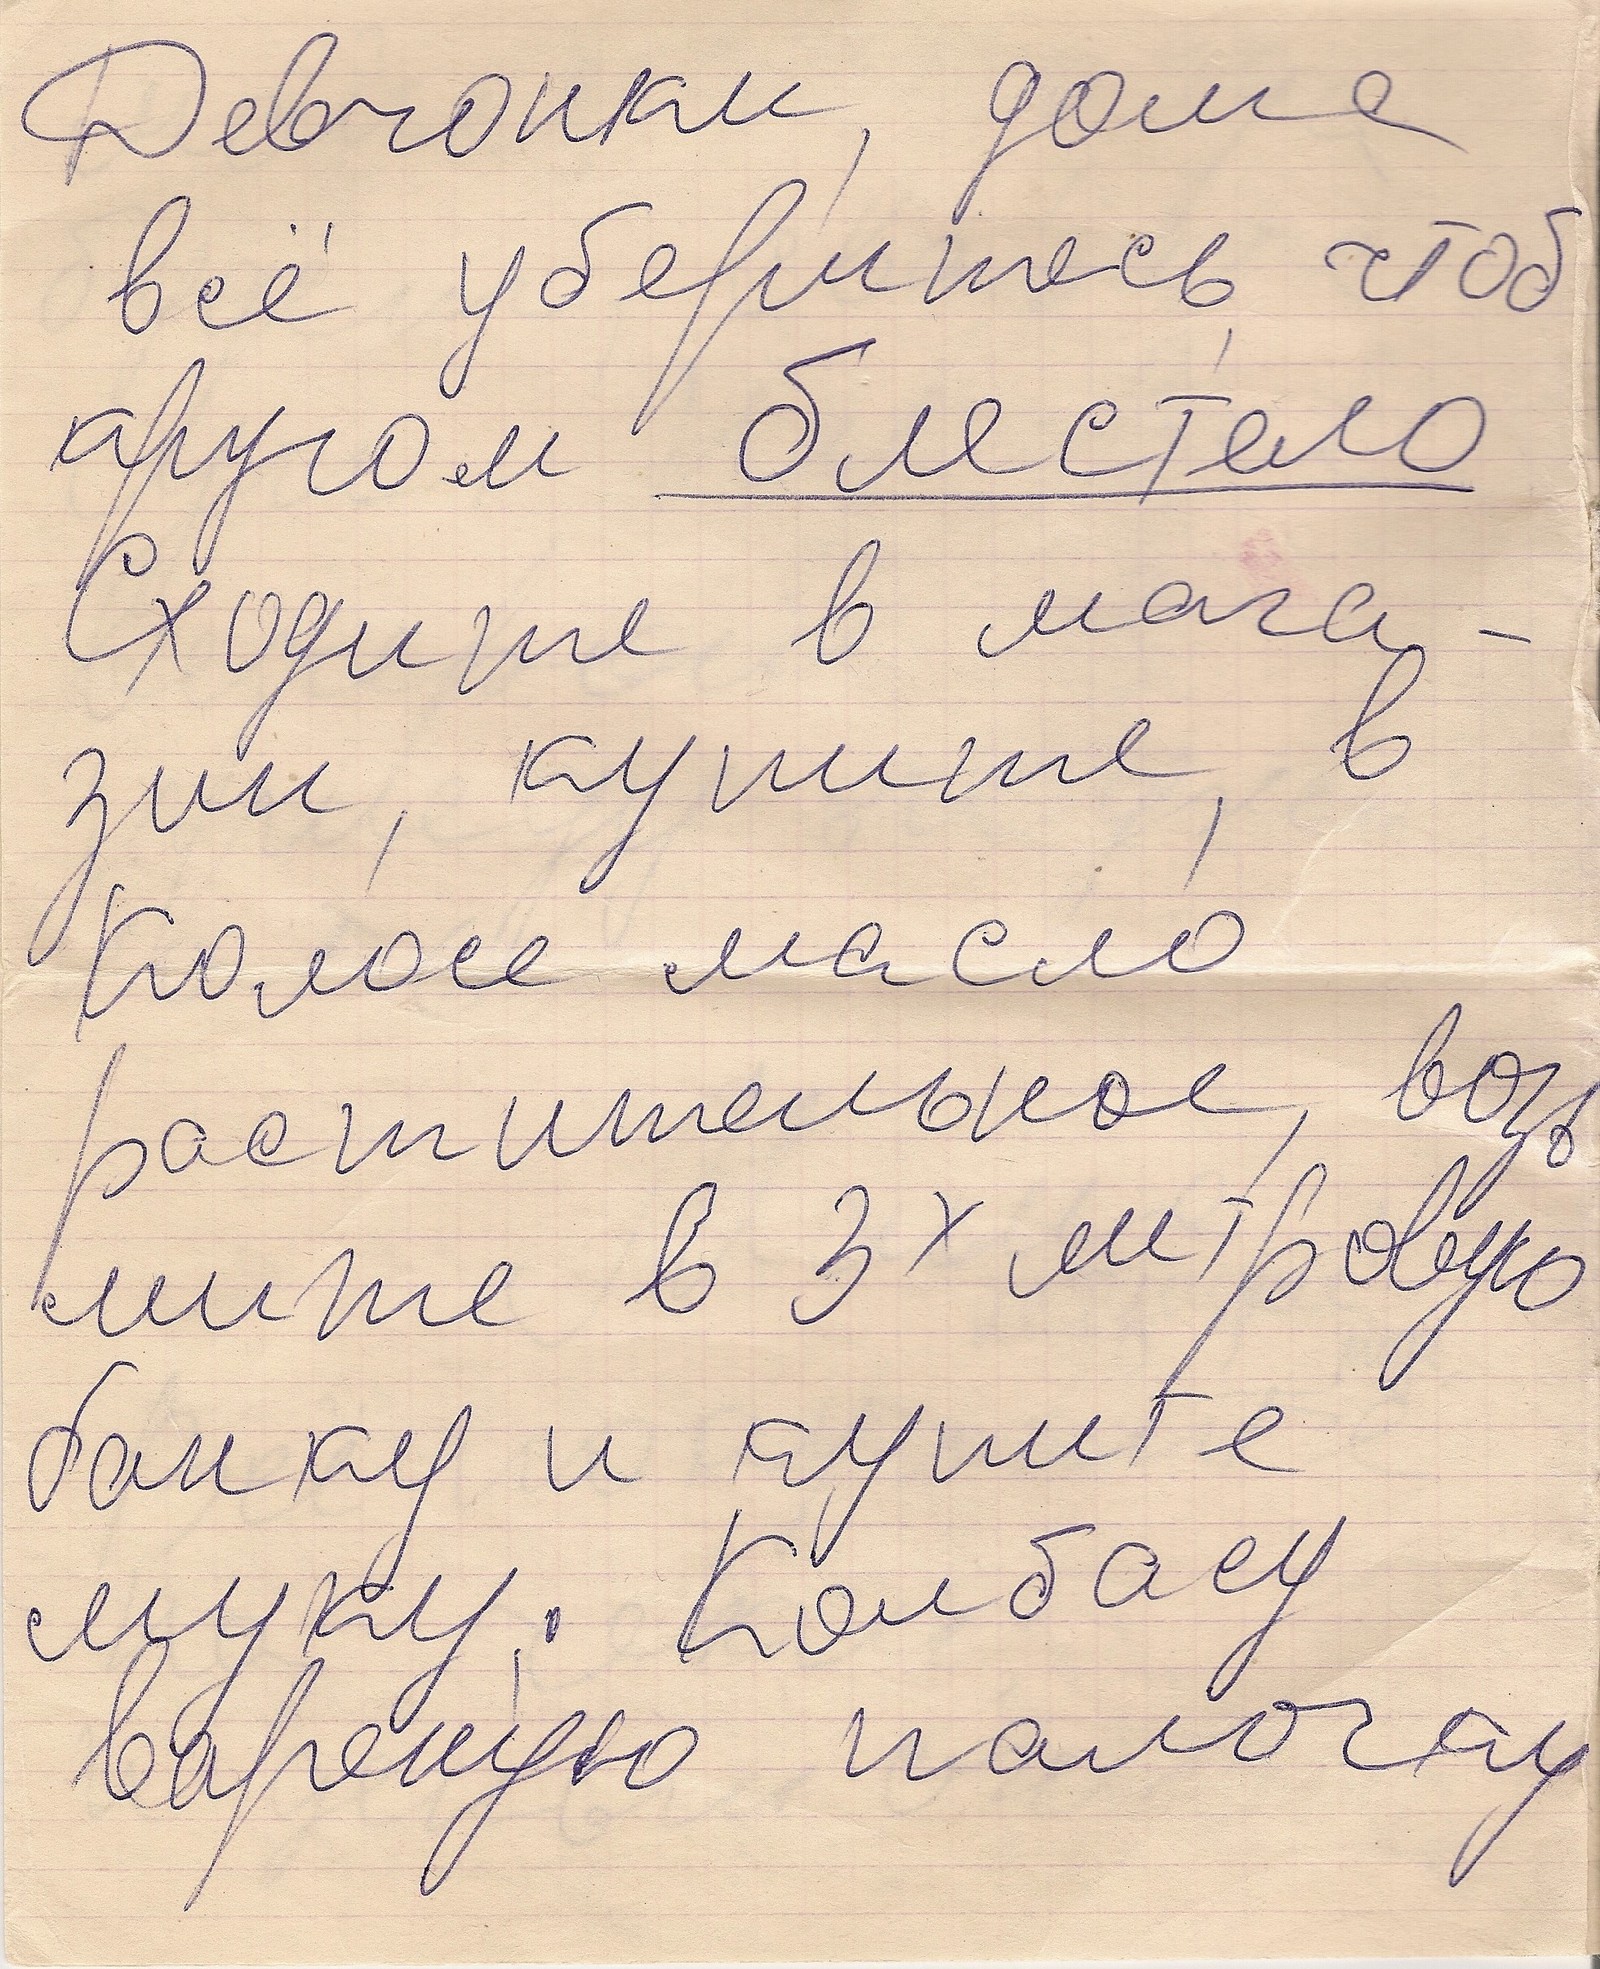 Девчонки, дома
всё уберитесь, чтоб
кругом блестело
Сходите в мага-
зин, купите, в
Колосе масло
растительное, возь
мите в 3х литровую
банку и купите
муку. Колбасу
вареную палочку